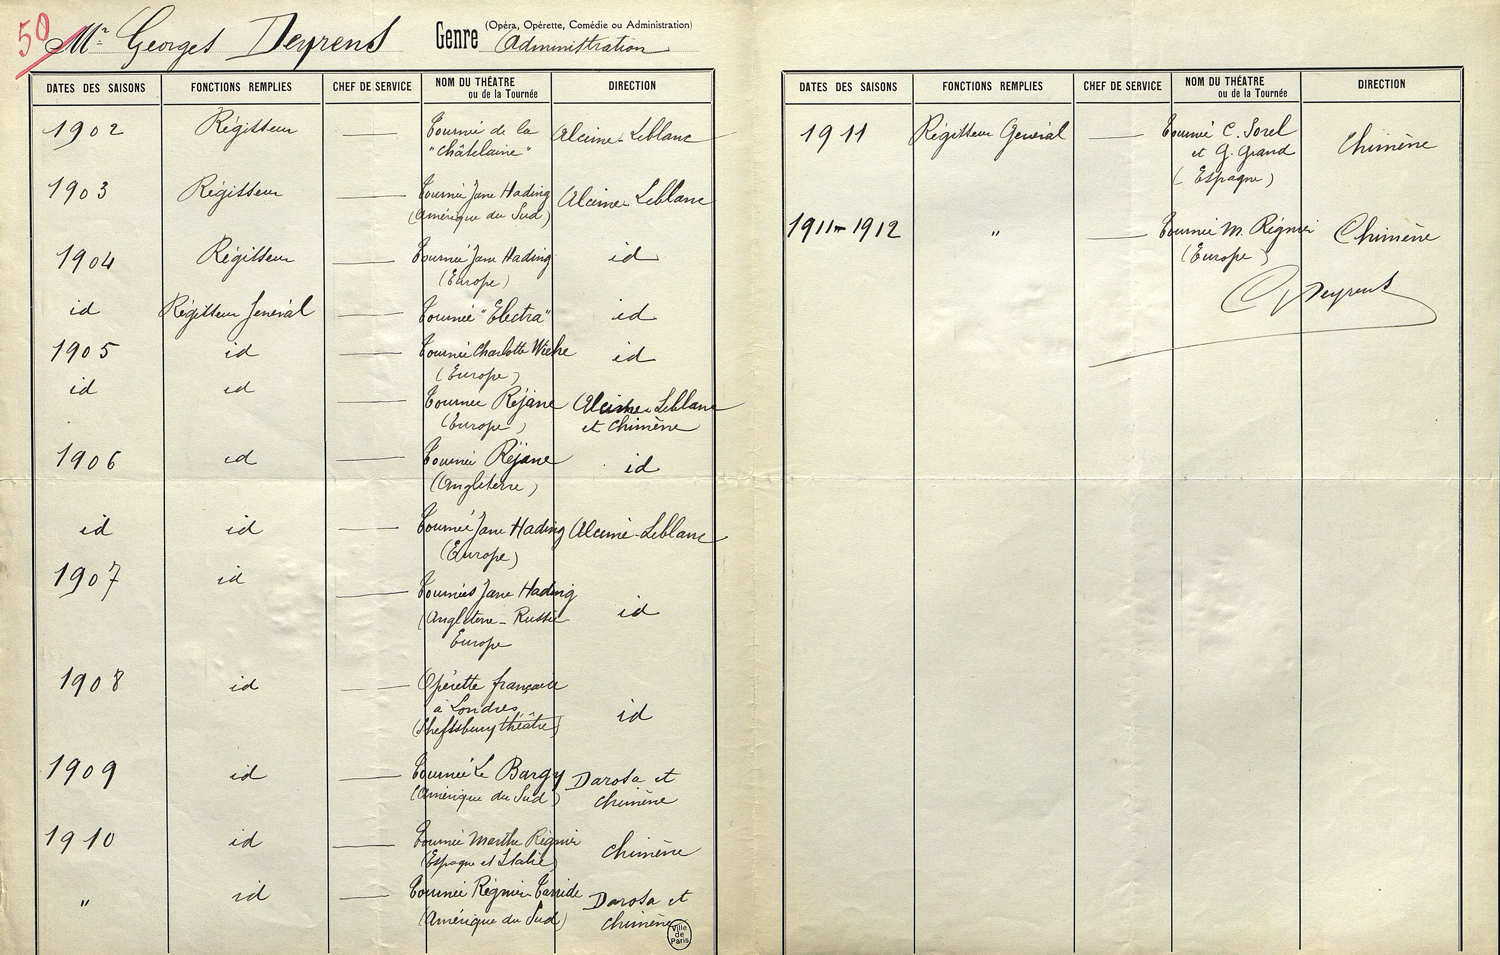 50
Mr Georges Deyrens
Genre (Opéra, Opérette, Comédie ou Administration)
Administration
DATES DES SAISONS FONCTIONS REMPLIES CHEF DE SERVICE NOM DU THÉATRE ou de la Tournée DIRECTION
1902 Régisseur — Tournée de la Alcime-Leblanc
"Châtelaine"
1903 Régisseur — Tournée Jane Hading Alcime-Leblanc
(Amérique du Sud)
1904 Régisseur — Tournée Jane Hading id
(Europe)
id Régisseur Général — Tournée "Electra" id
1905 id — Tournée Charlotte Wiehe id
(Europe)
id id — Tournée Réjane Alcime-Leblanc
(Europe) et Chimène
1906 id — Tournée Réjane id
(Angleterre)
id id — Tournée Jane Hading Alcime-Leblanc
(Europe)
1907 id — Tournées Jane Hading id
(Angleterre - Russie
Europe
1908 id — Opérette française id
à Londres
(Sheftsbury théâtre)
1909 id — Tournée Le Bargy Darosa et
(Amérique du Sud) Chimène
1910 id — Tournée Marthe Régnier Chimène
(Espagne et Italie)
" id — Tournée Régnier-Tarride Darosa et
(Amérique du Sud) Chimène
Ville
de
Paris
DATES DES SAISONS FONCTIONS REMPLIES CHEF DE SERVICE NOM DU THÉATRE ou de la Tournée DIRECTION
1911 Régisseur Général — Tournée C. Sorel Chimène
et G. Grand
(Espagne)
1911-1912 " — Tournée M. Régnier Chimène
(Europe)
G Deyrens